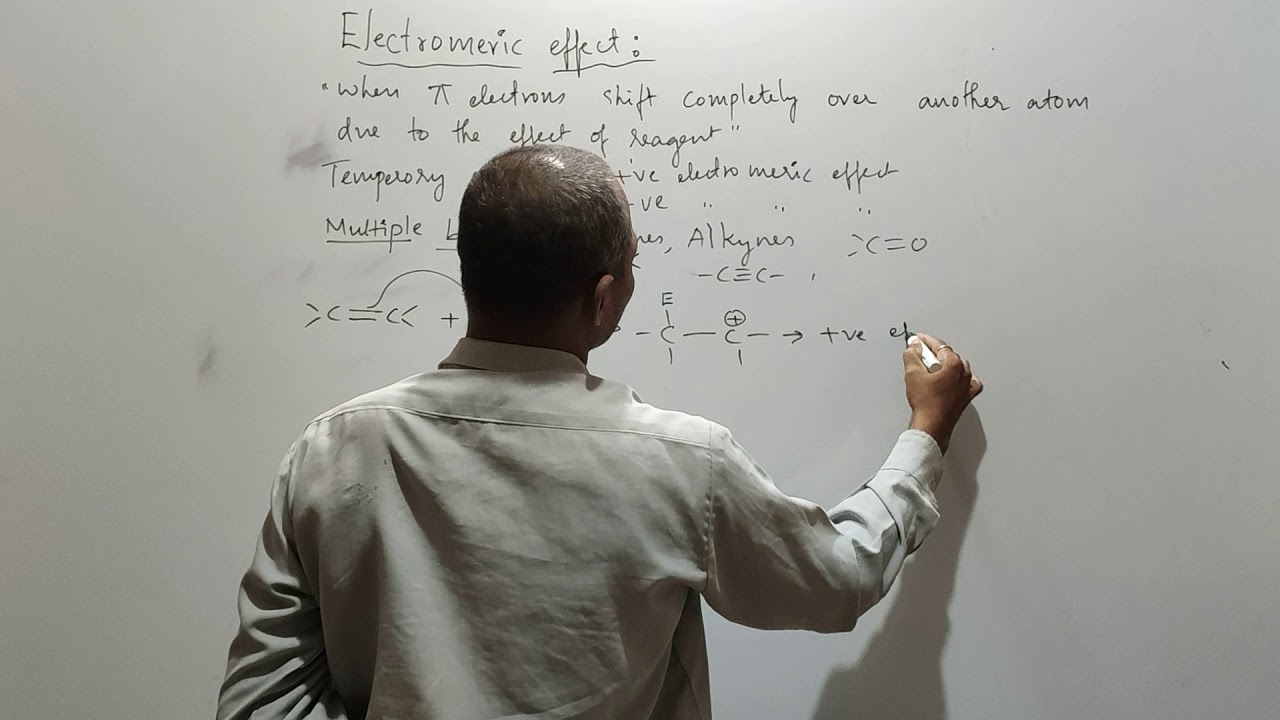 Electromeric effect:
"When π electrons shift completely over another atom
due to the effect of reagent"
Temperory +ve electromeric effect
-ve " " "
Multiple Alkynes, >C=O
-C≡C- ,
>C=C< +
E
-C-C- → +ve
⊕